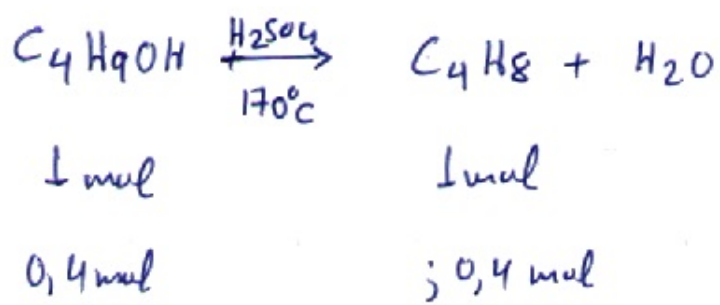 C4H9OH H2SO4 → C4H8 + H2O
170°C
1 mol 1 mol
0,4 mol ; 0,4 mol